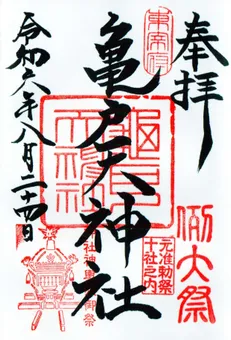 奉拝
東宰府
例大祭
亀戸天神社
元准勅祭
十社之内
令和六年八月二十四日